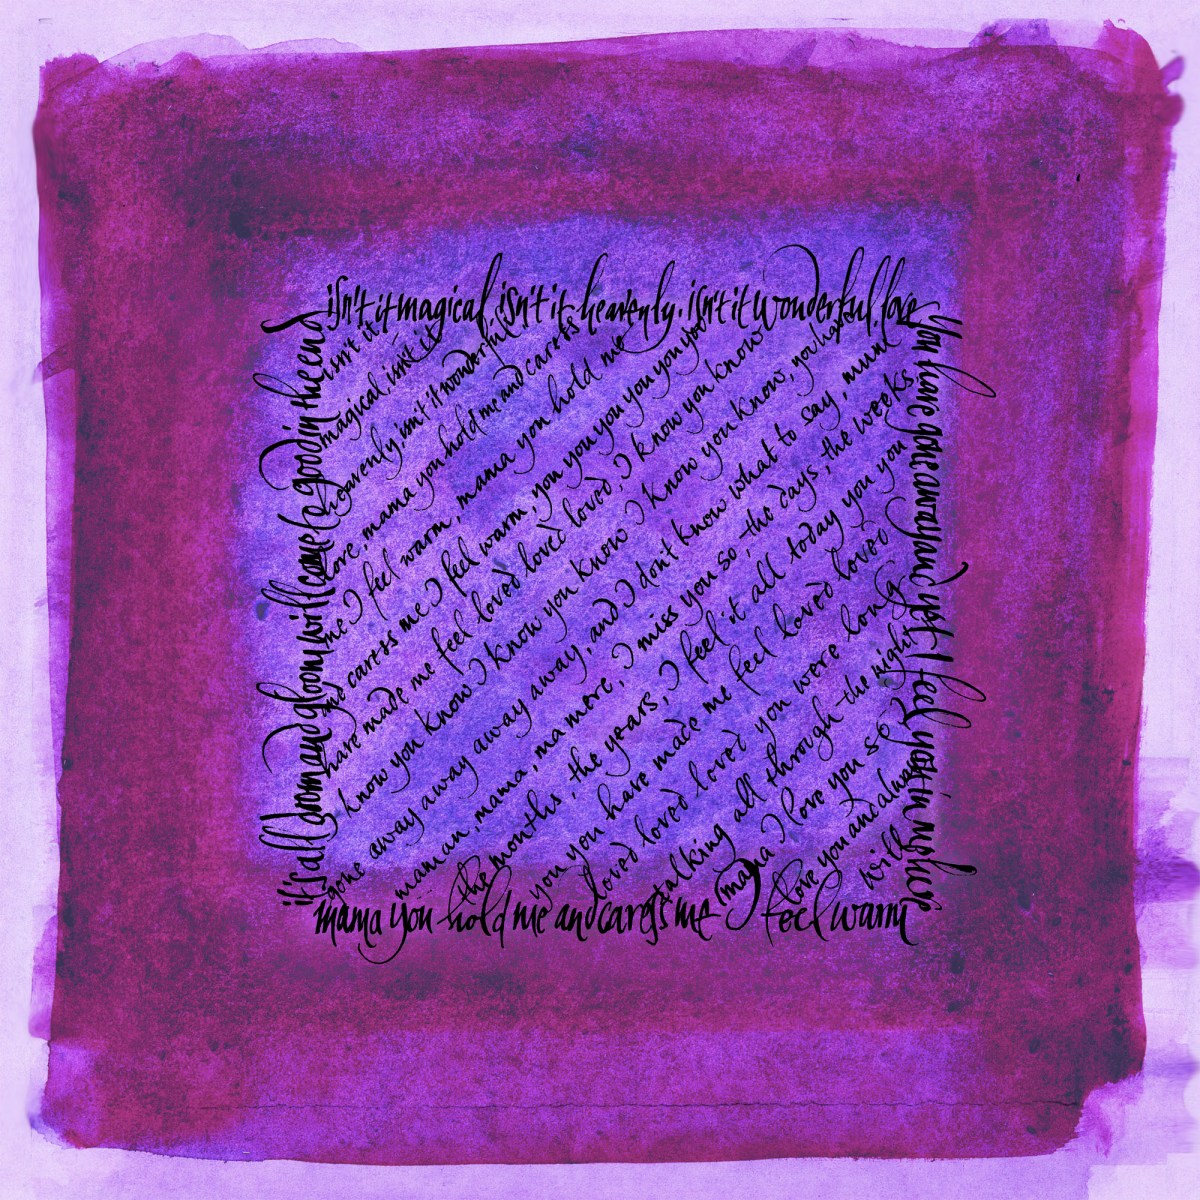 isn't it magical, isn't it heavenly. isn't it wonderful. love
you have gone away and yet I feel you in my
mama you hold me and caress me I feel warm
it's all doom and gloom will come good in the end
isn't it
magical, isn't it
heavenly isn't it wonderful
love, mama you hold me and caress
me I feel warm, mama you hold me
and caress me I feel warm, you you you you you you you
have made me feel loved loved loved, I know you know
I know you know I know you know I know you know, you have
gone away away away away, and I dont know what to say, mum
maman, mama, ma mere, I miss you so, the days, the weeks,
the months, the years, I feel it all today you you
you you have made me feel loved loved
loved loved loved you were long
talking all through the night
mama I love you so
love you and always
will